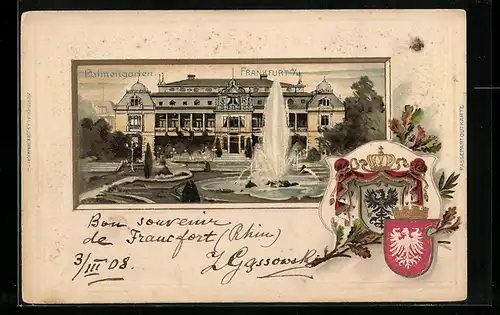 Palmengarten FRANKFURT a/M
PASSEPARTOUTKARTE
Bon souvenir
de Francfort (Rhin)
3/III 03